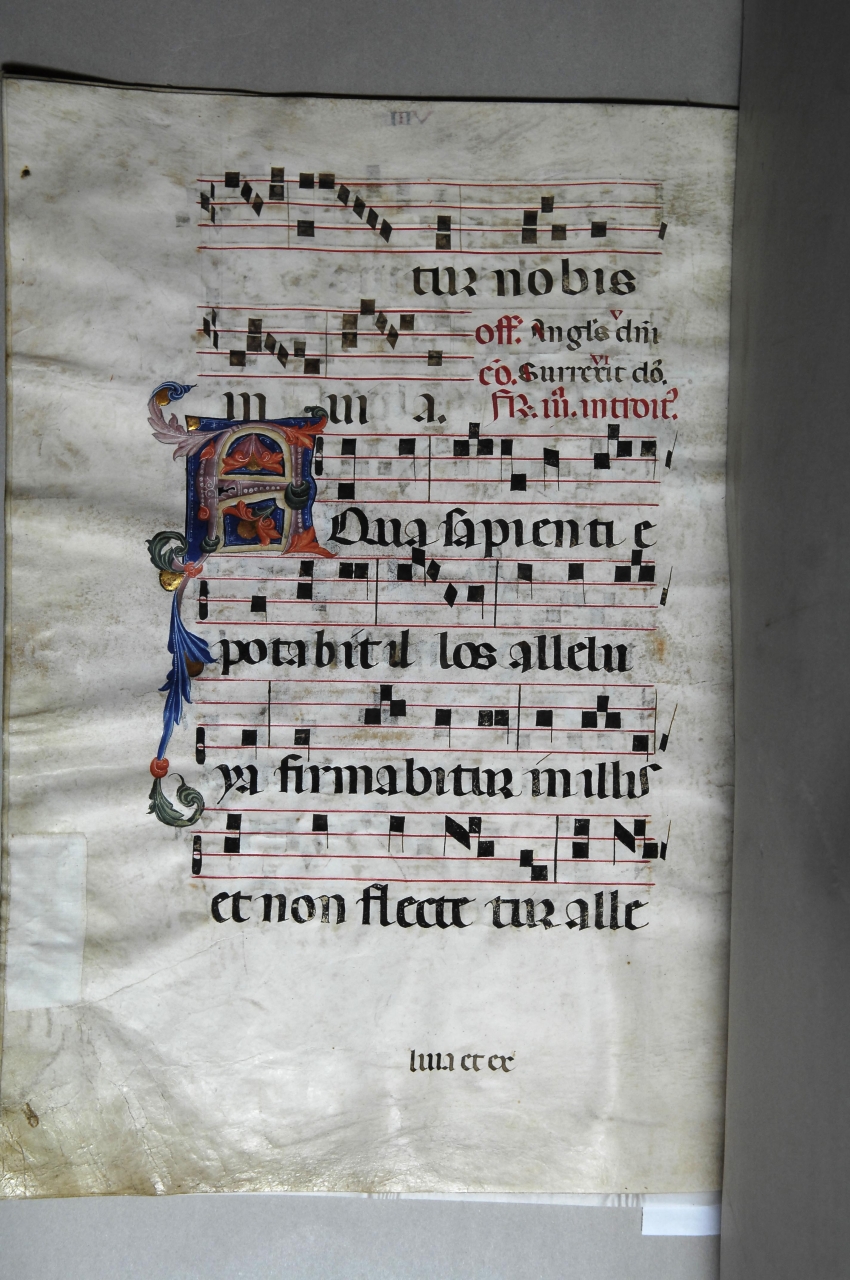 VIII
tur nobis
off. Angl's dni
v
co. Surrexit do.
vi
in in a.
FR. iii. introit9.
AQua sapienti e
potabit il los allelu
ya firmabitur in illis
et non flecte tur alle
luia et ex